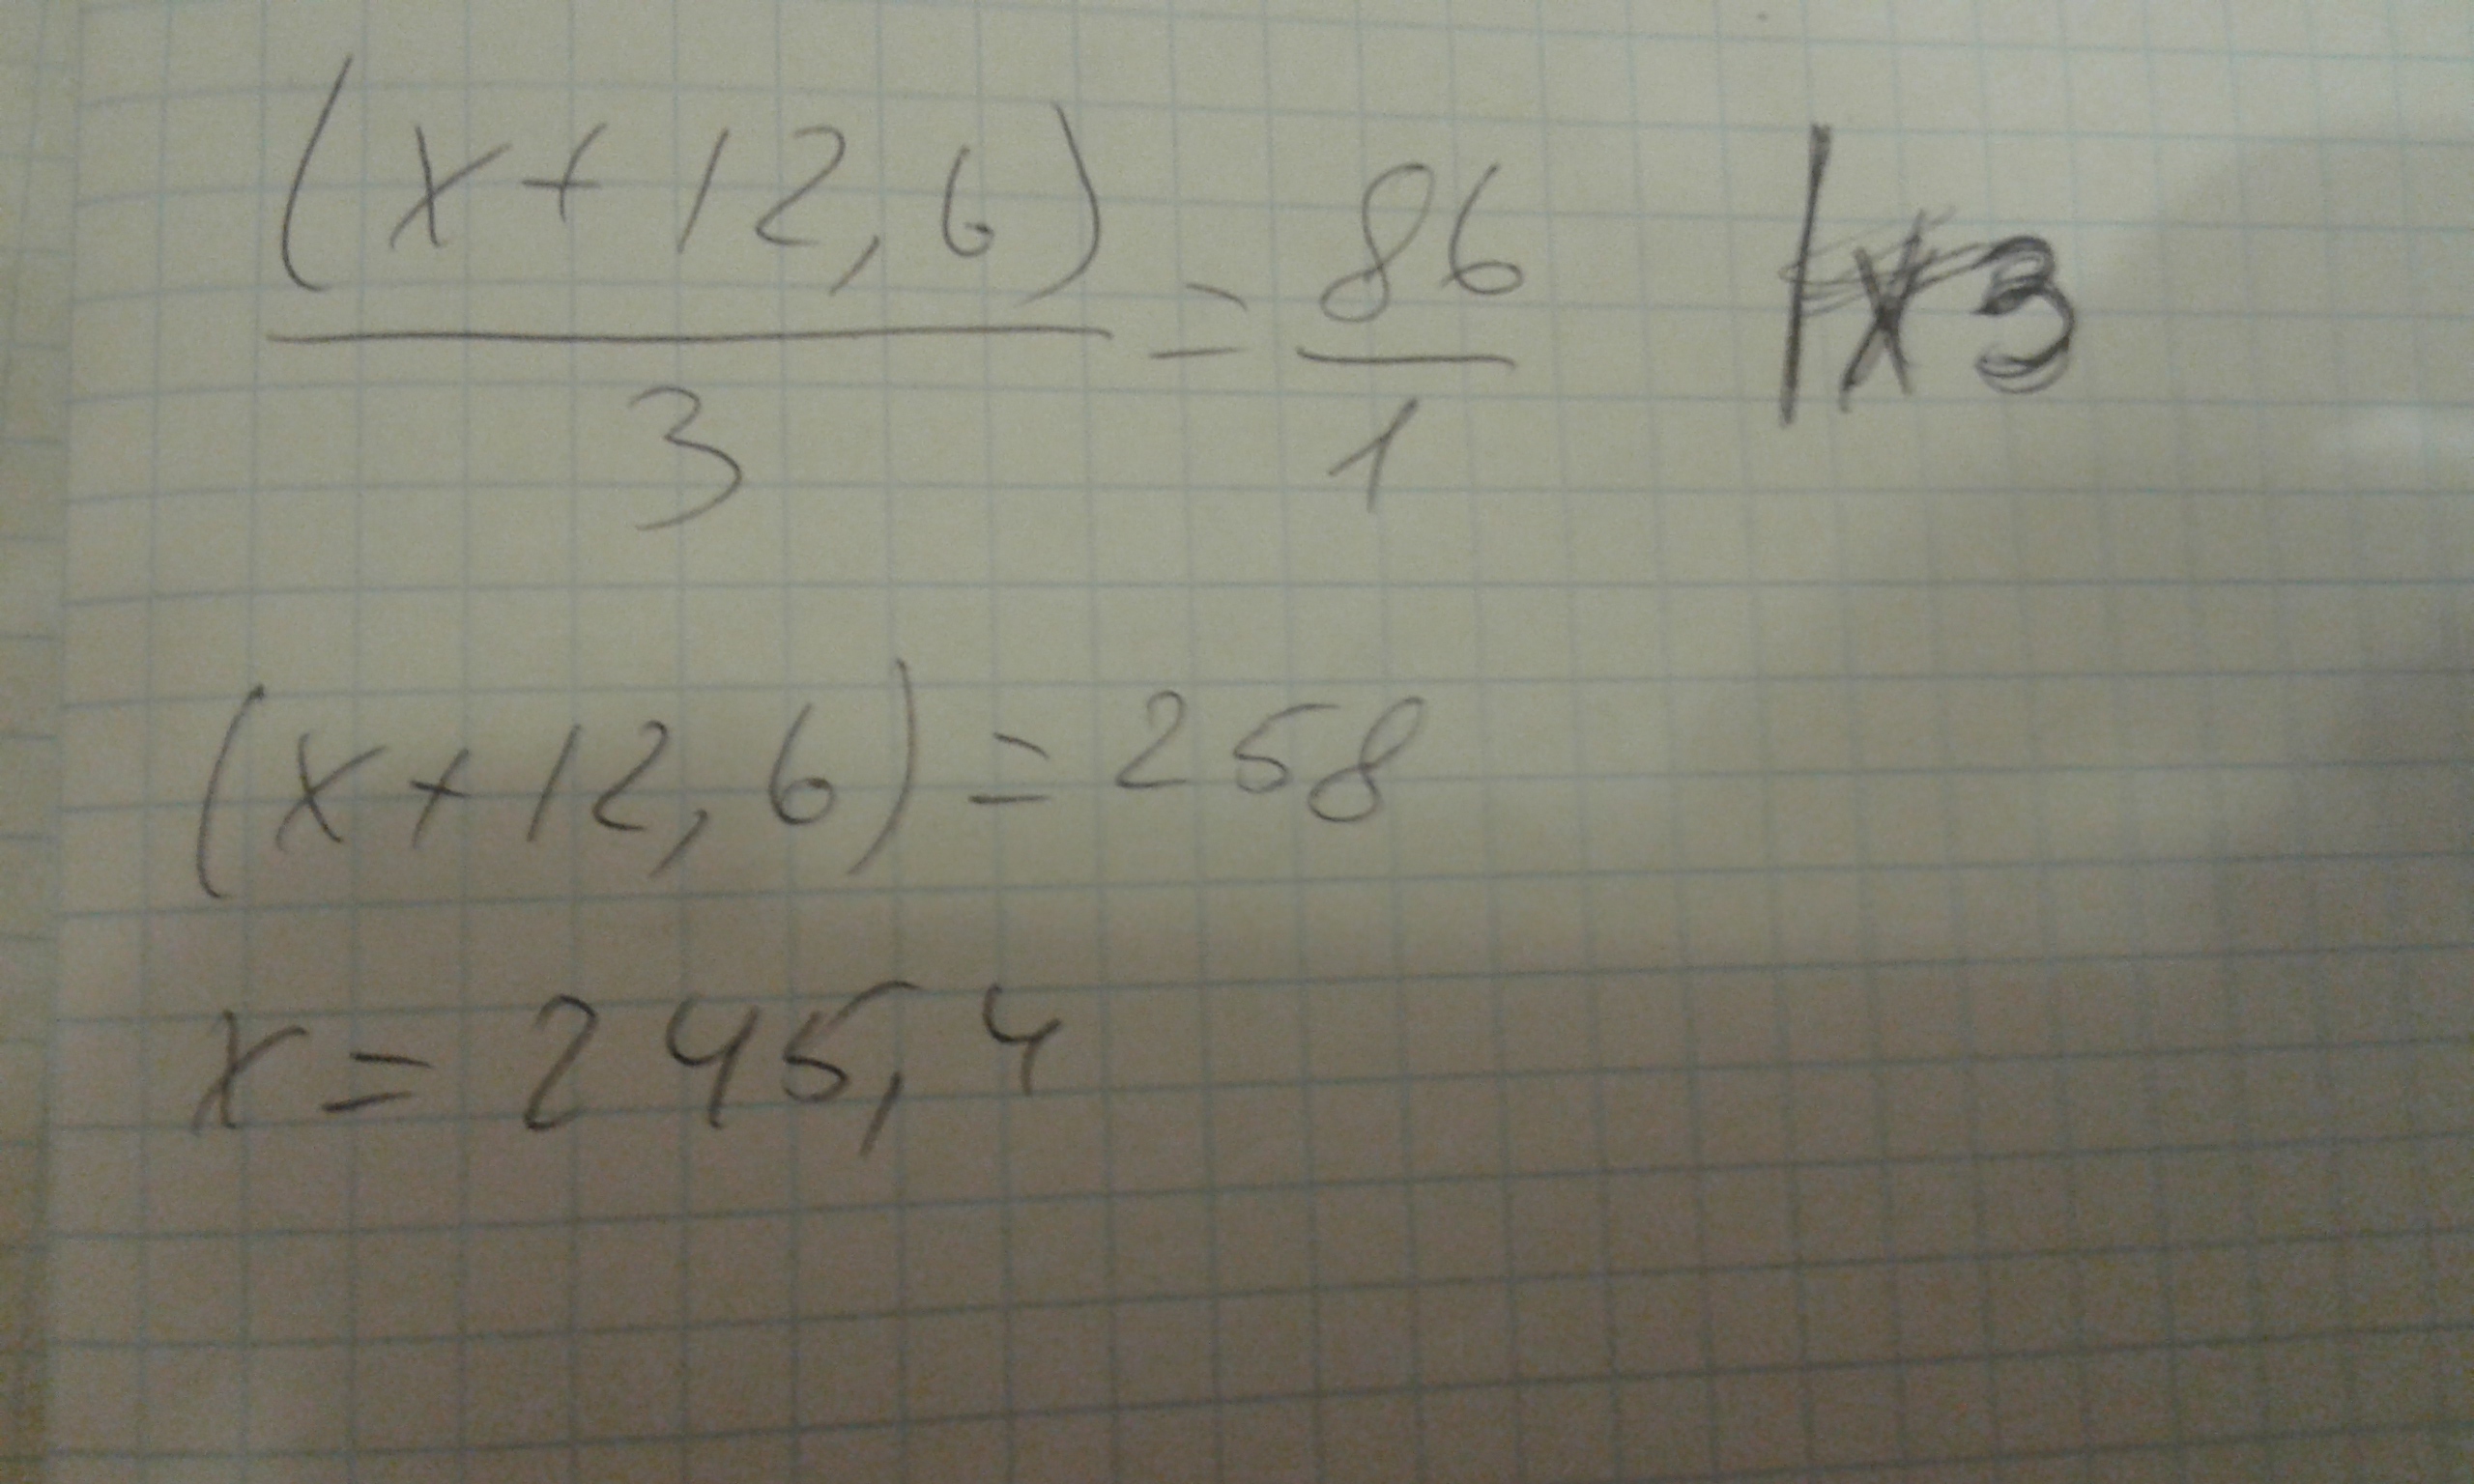 (x+12,6)/3 = 86/1 |x3
(x+12,6)=258
x=245,4